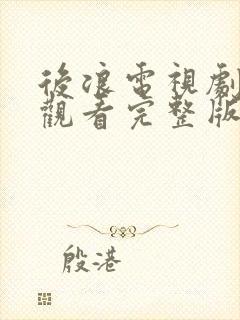 後浪電視劇
觀看完整版
殷港